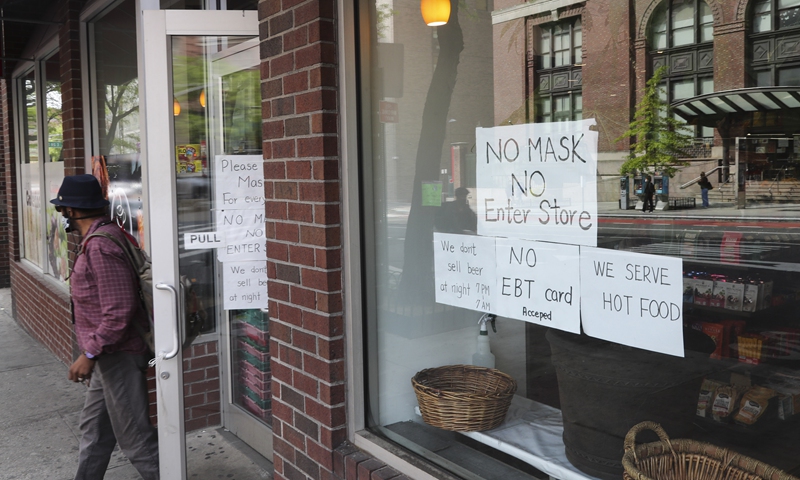 Please
Mas
For every
NO M
NO
ENTER S
We don't
sell beer
at night
PULL
NO MASK
NO
Enter Store
We don't
sell beer
at night 7PM
7AM
NO
EBT card
Acceped
WE SERVE
HOT FOOD